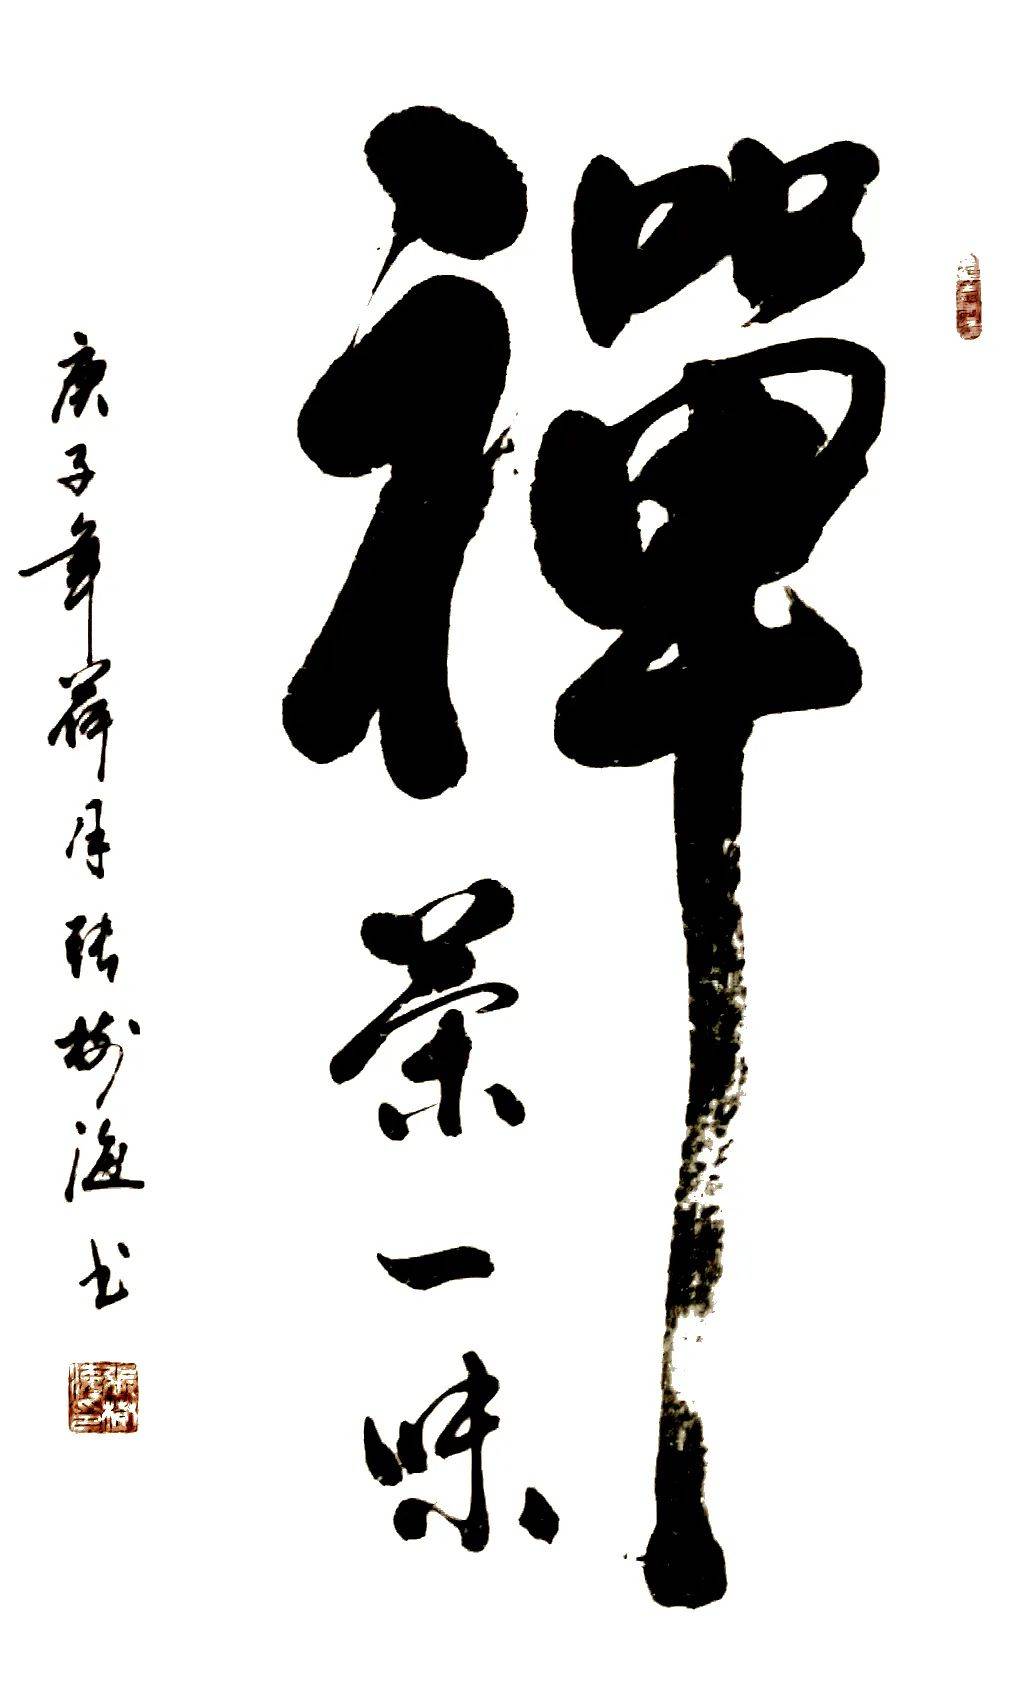 禪茶一味
庚子年荷月張樹海书